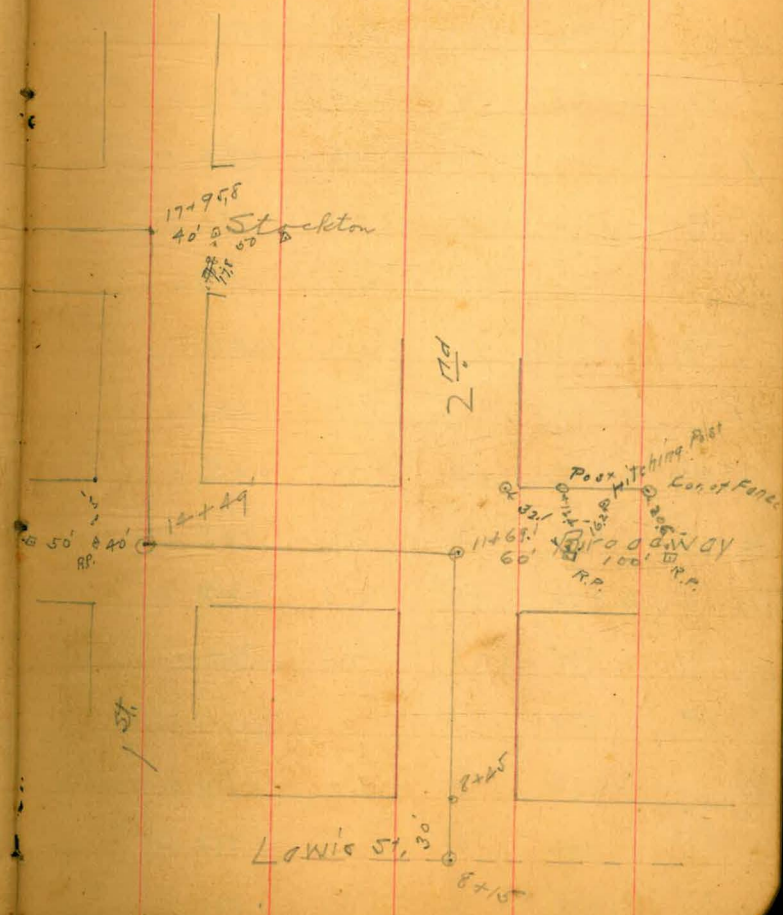 17+95,8
40' 50' Stockton
17,8
2nd
Post Hitching Post
Cor. of Fence
32.1
16.2
20.6
14+49'
50' 40'
R.P.
11+69.1
60' Broadway
100'
R.P. R.P.
1 St.
8+45
Lewis St, 30'
8+15